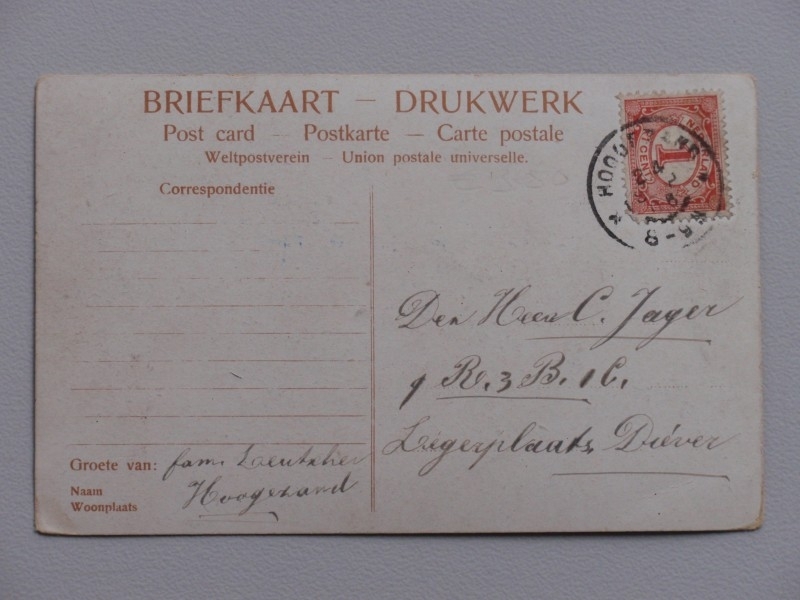 BRIEFKAART — DRUKWERK
Post card — Postkarte — Carte postale
Weltpostverein — Union postale universelle.
Correspondentie
NEDERLAND
1
CENT
HOOGEZAND
5-8
Den Heer C. Jager
9 R. 3 B. 1 C.
Legerplaats Diéver
Groete van: fam.
Naam
Woonplaats
Hoogezand